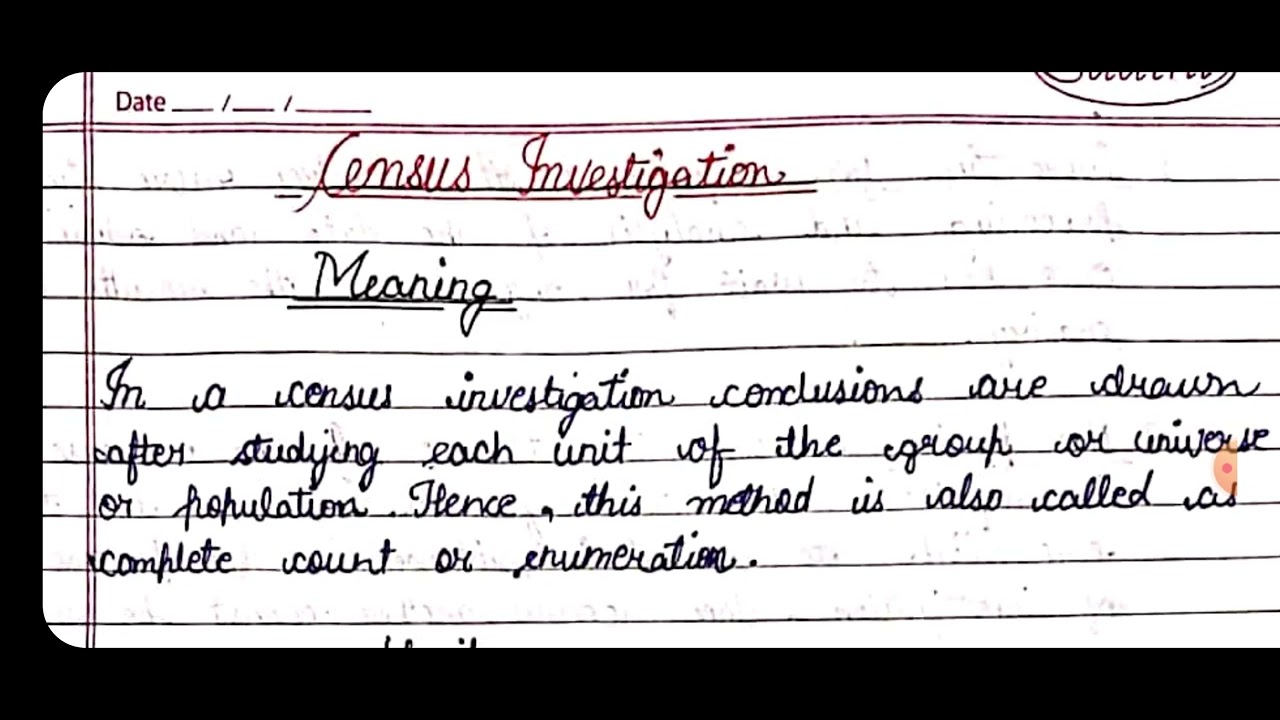 Date __ /__ /____
Census Investigation
Meaning
In a census investigation conclusions are drawn
after studying each unit of the group or universe
or population. Hence, this method is also called as
complete count or enumeration.